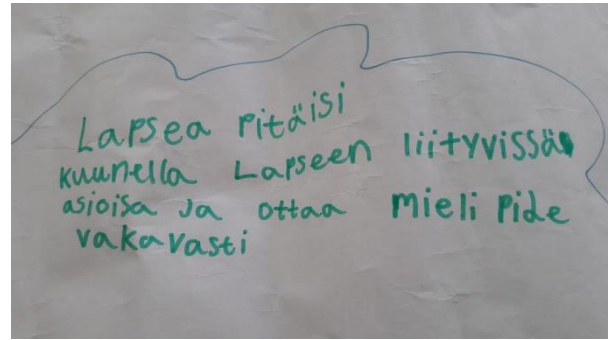 Lapsea pitäisi
kuunella Lapseen liityvissä
asioisa ja ottaa mieli pide
vakavasti